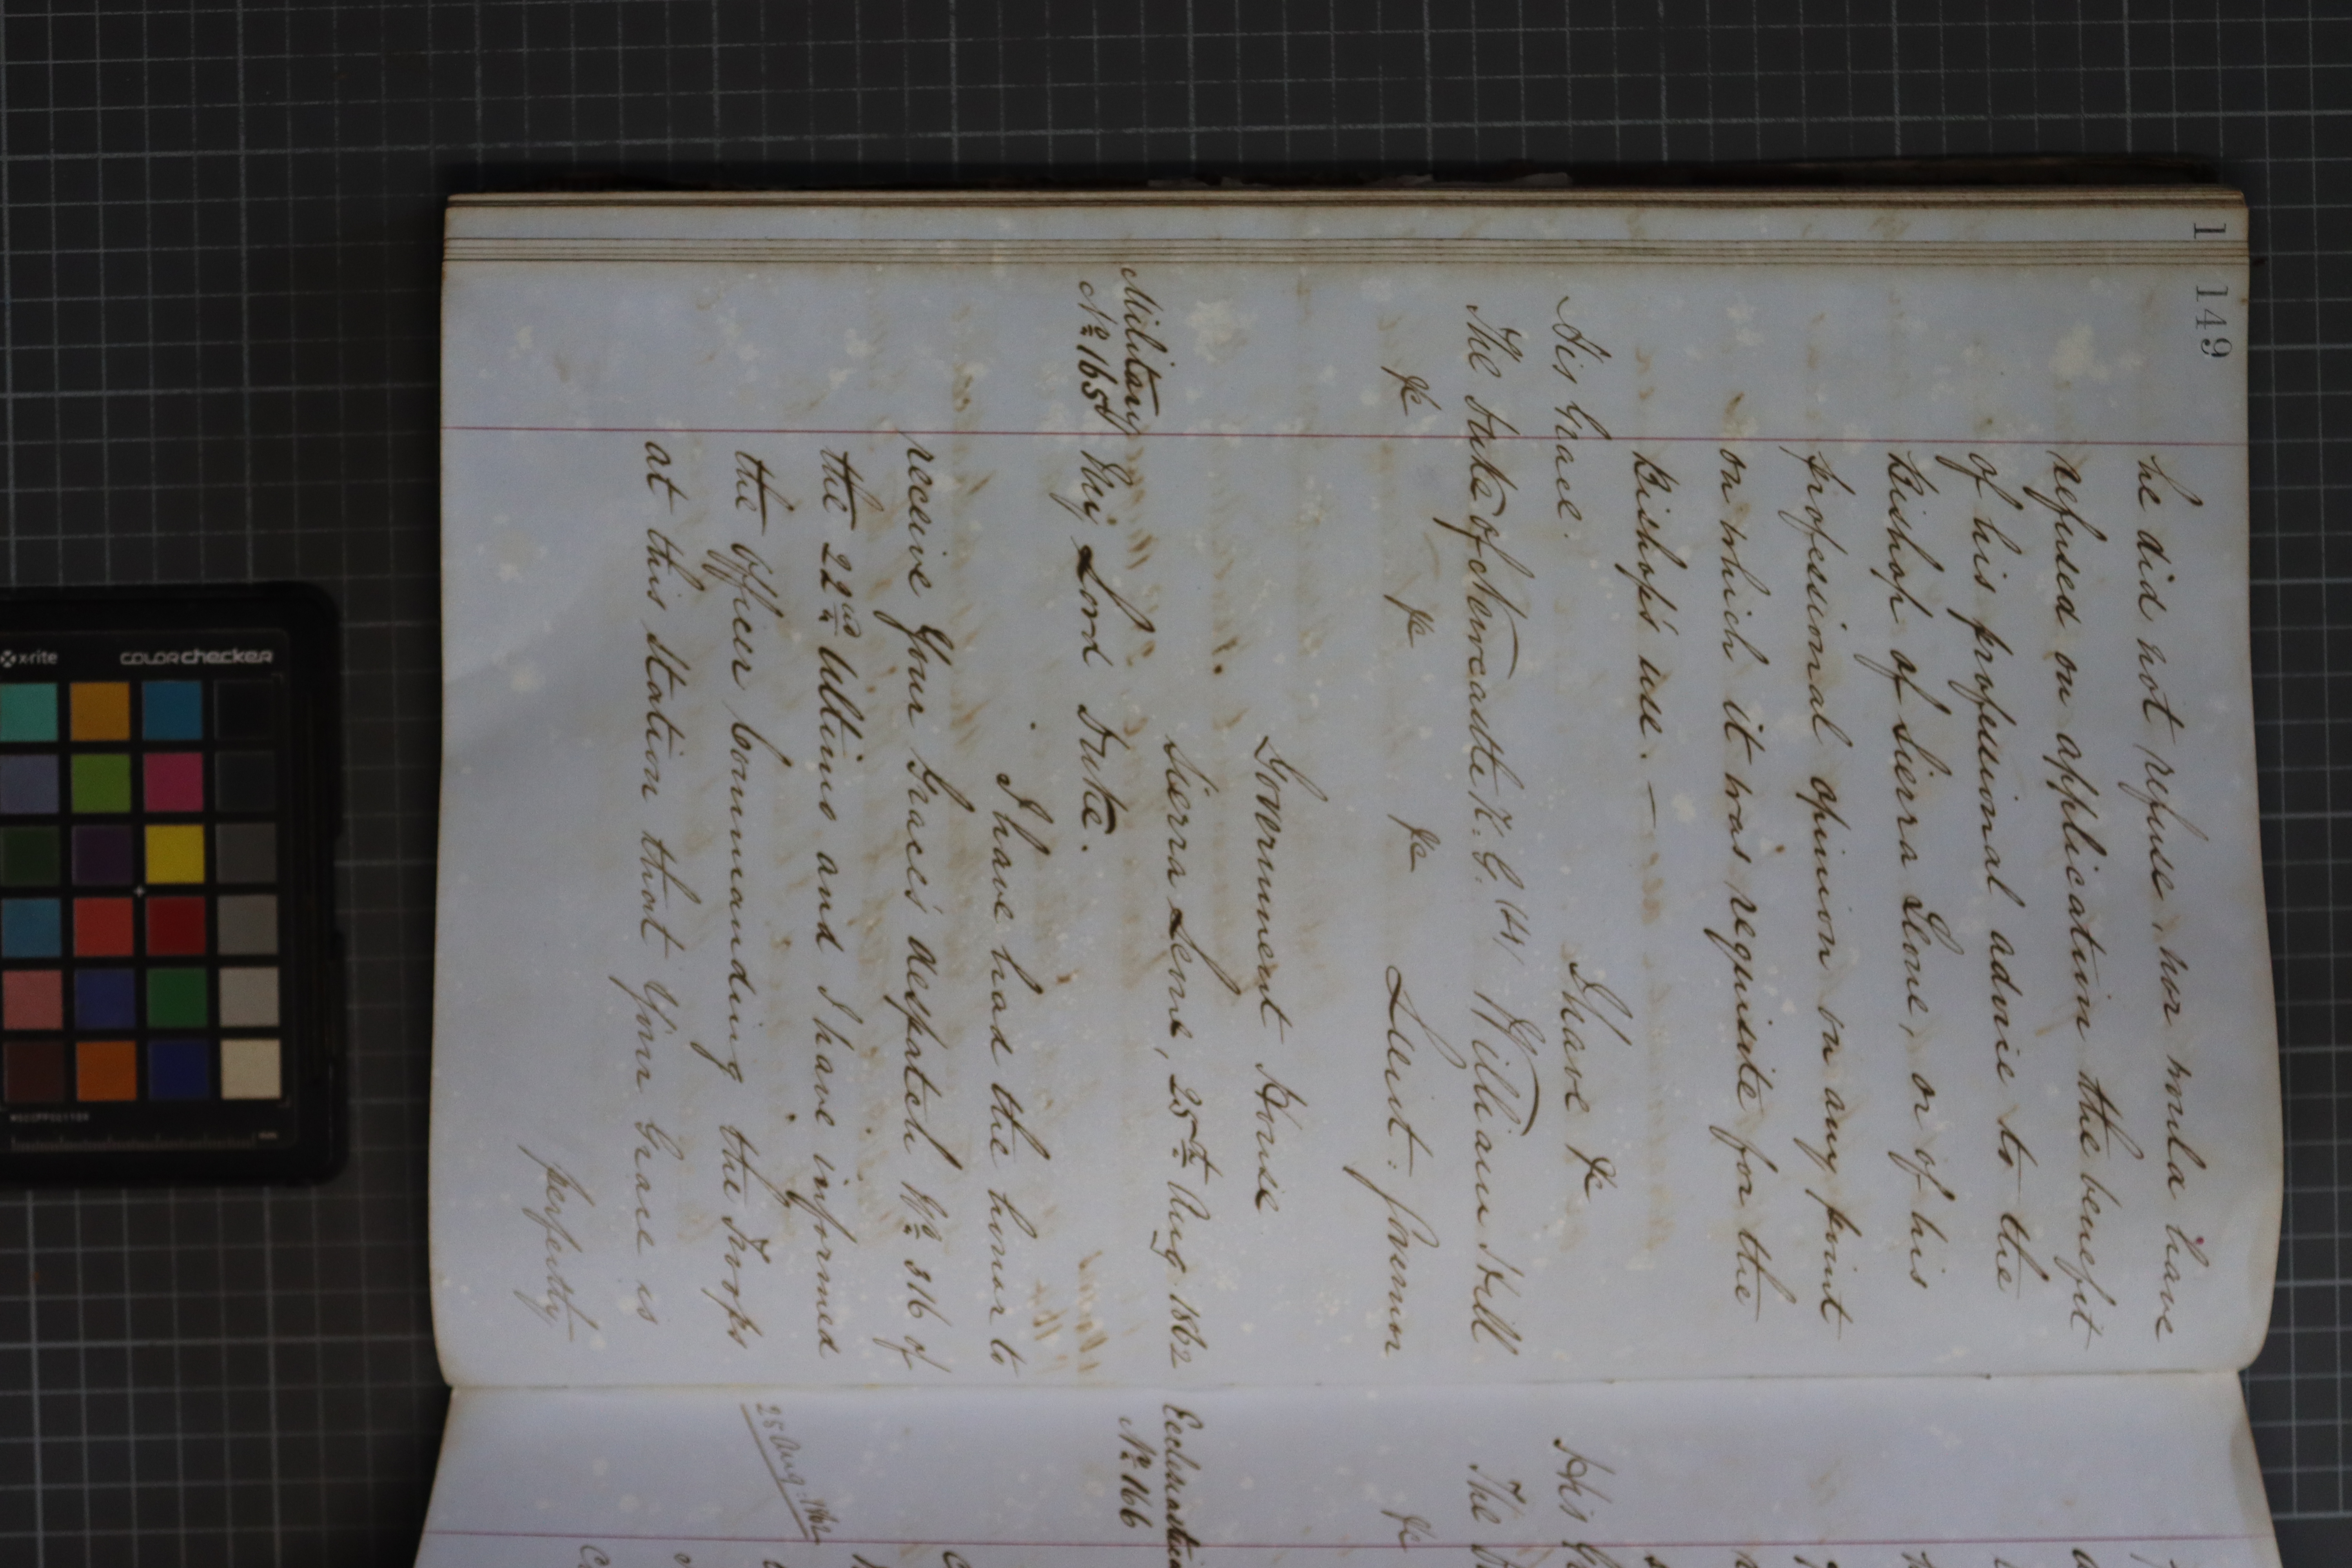 1 149
he did not refuse, nor would have
refused on application the benefit
of his professional advice to the
Bishop of Sierra Leone, or of his
professional opinion on any point
on which it was requisite for the
Bishop's use. —
I have &c
His Grace.
The Duke of Newcastle K. G. (H) William Hill
&c &c &c Lieut. Governor
Government House
Sierra Leone, 25th Aug 1862
Military
No 165 My Lord Duke.
I have had the honor to
receive Your Grace's despatch No 316 of
the 22nd Ultimo and I have informed
the Officer Commanding the Troops
at this Station that Your Grace is
perfectly
His
The
&c
No 166
25 Aug: 1862
x-rite colorchecker